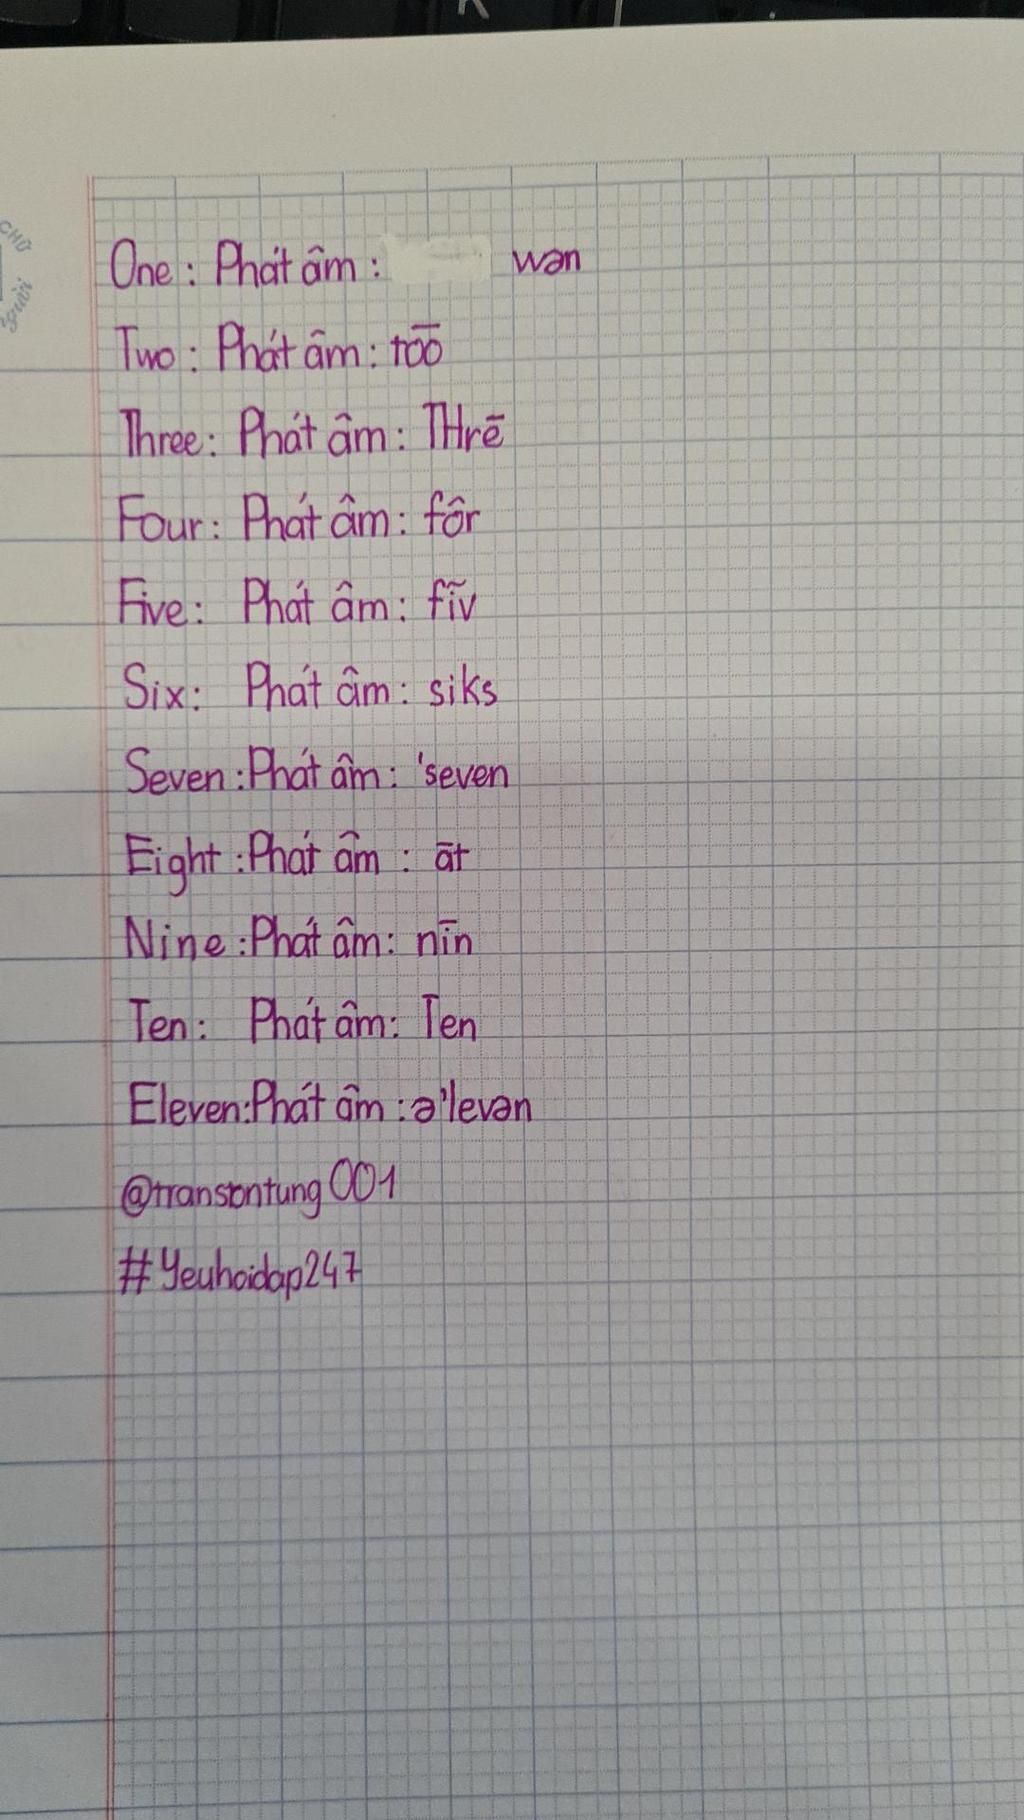 CHỮ
One : Phát âm : wən
Two : Phát âm : to͞o
Three : Phát âm : THrē
Four : Phát âm : fôr
Five : Phát âm : fĩv
Six : Phát âm : siks
Seven : Phát âm : 'seven
Eight : Phát âm : āt
Nine : Phát âm : nīn
Ten : Phát âm : Ten
Eleven : Phát âm : ə'levən
@transontung001
#Yeuhoidap247